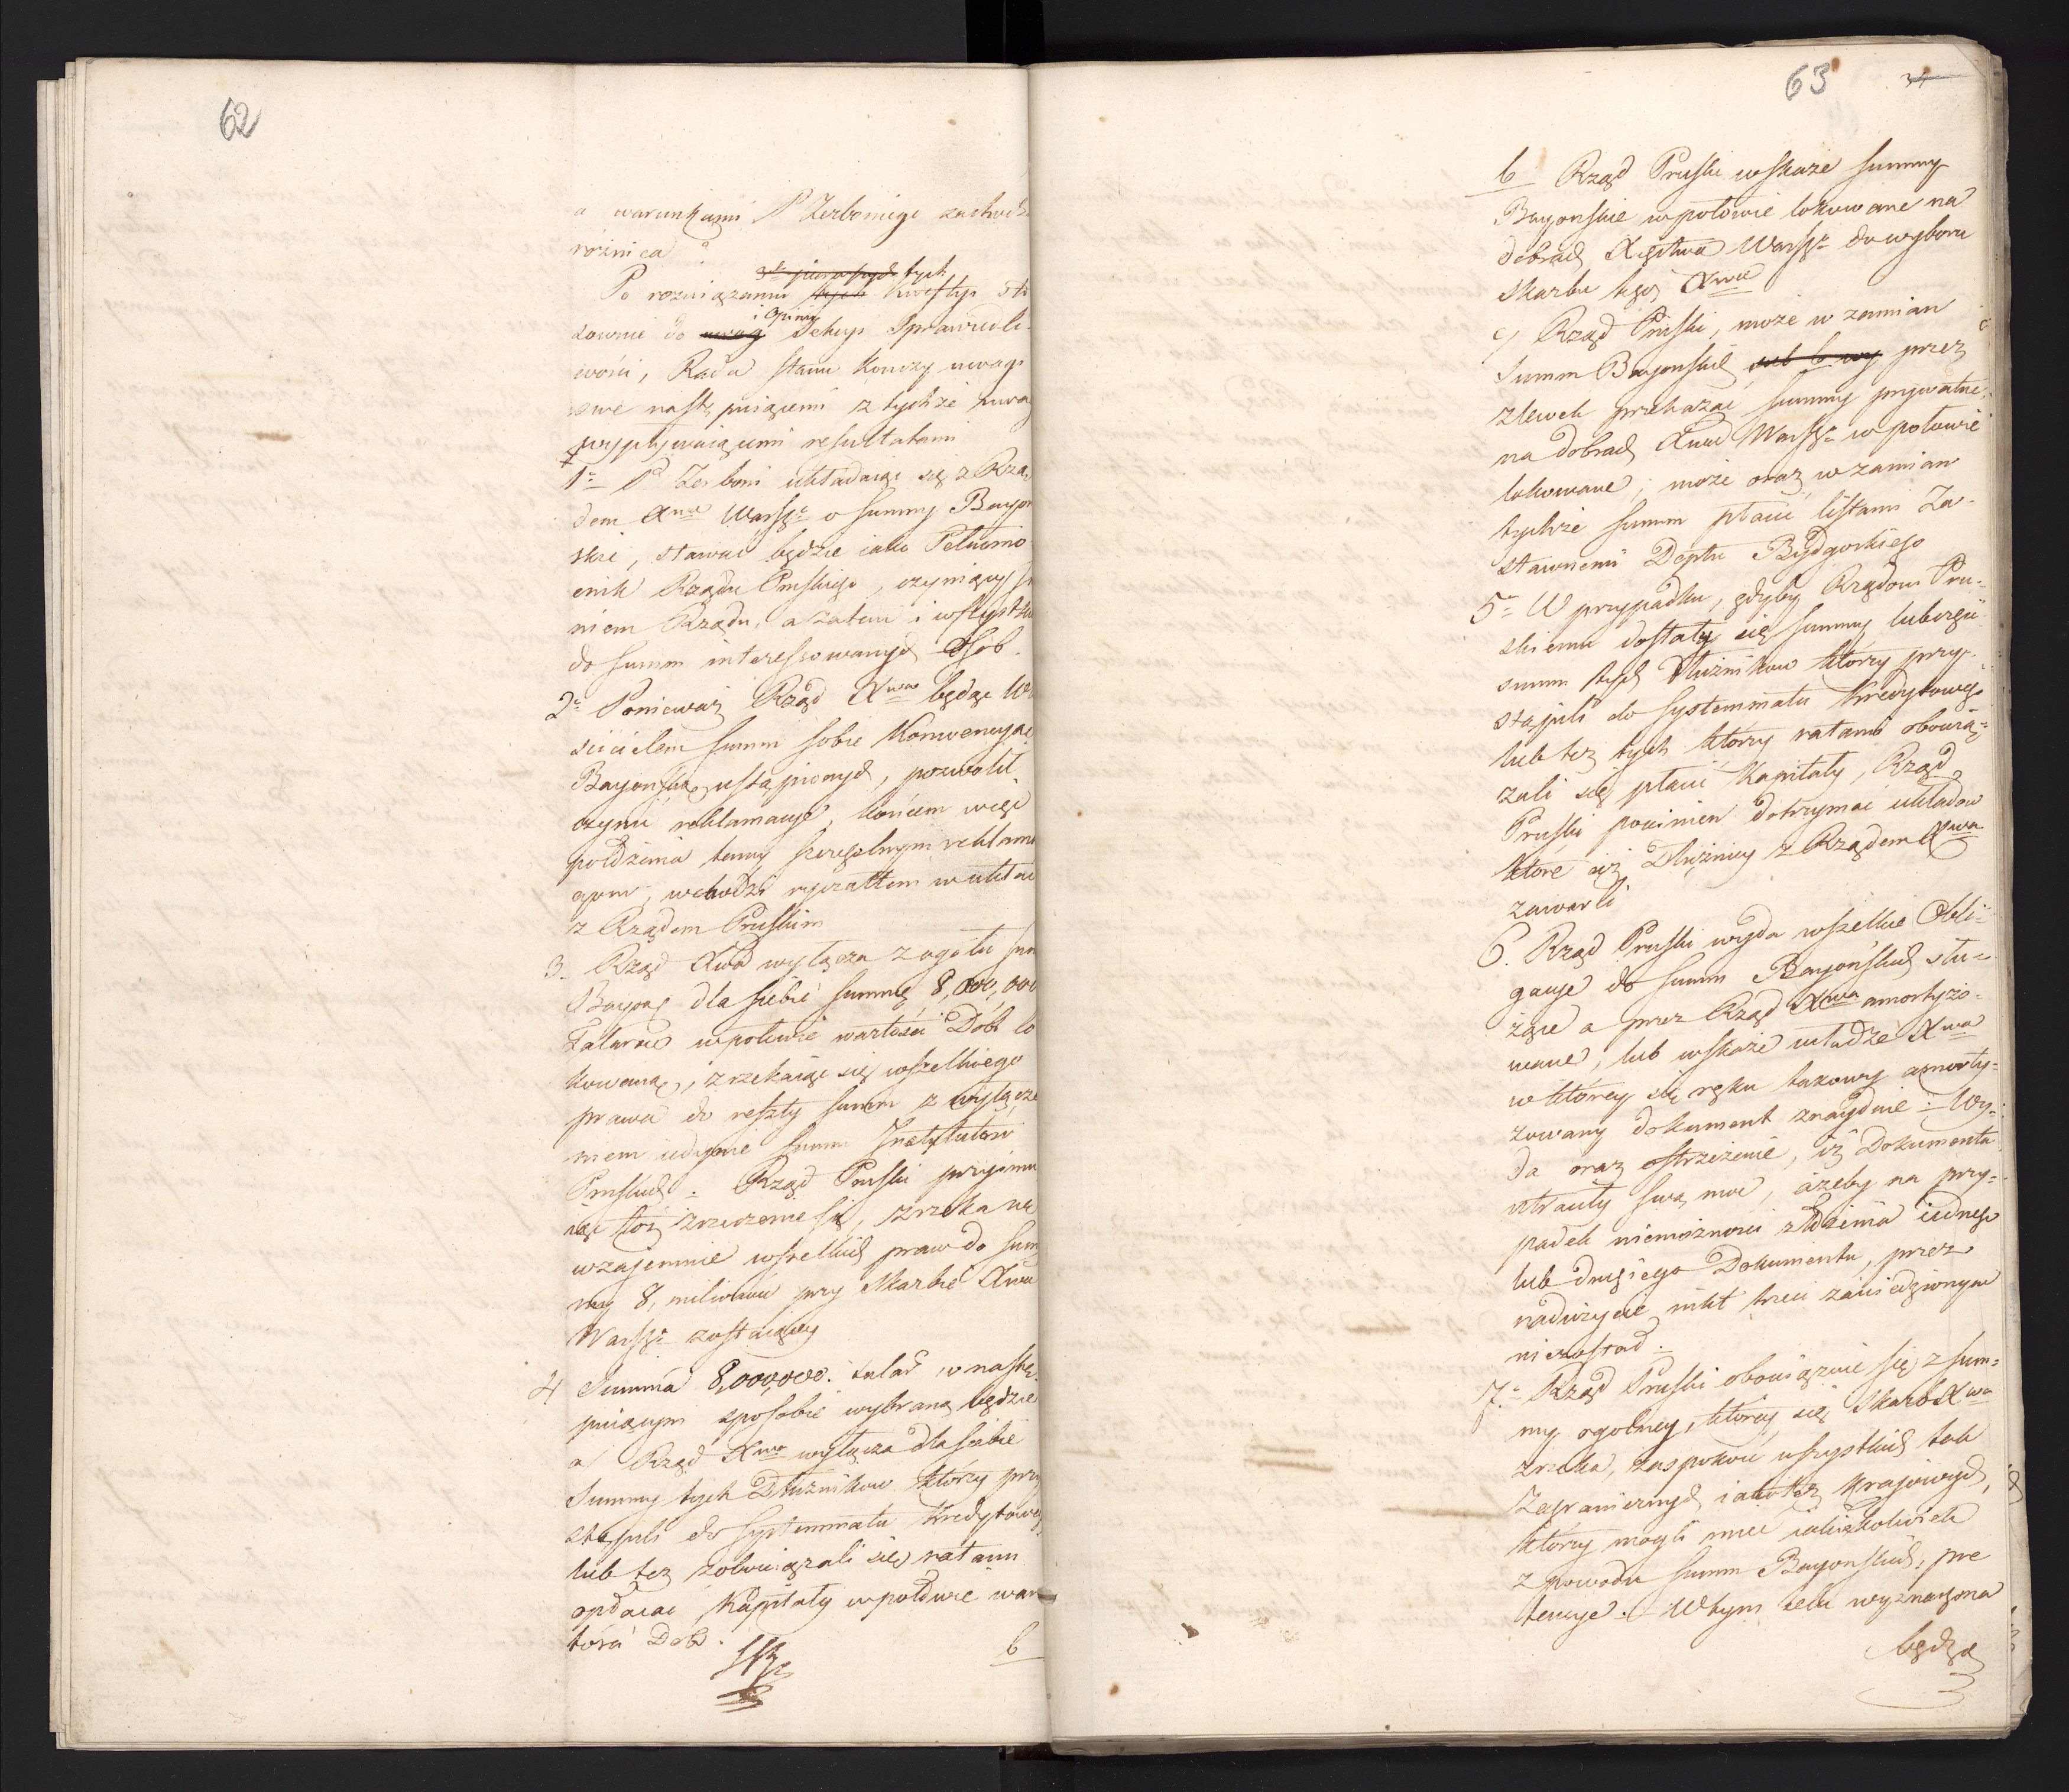 62
a warunkami P Zerboniego zachodzi
różnica.
tych
Po rozwiązaniu tych kwestyi sto
i Opinij
sownie do uwag Sekcyi Sprawiedli-
wości, Rada Stanu kończy uwagi
swe następuiącemi z tychże uwag
wypływaiącemi resultatami
1° P Zerboni układaiąc się z Rzą
dem Xwa Warszo o summy Bayon
skie, stawać będzie iako Pełnomo
cnik Rządu Pruskiego, czyniący
niem Rządu, a zatem i wszystki
do summ interessowanych Osób.
2° Ponieważ Rząd Xwa będąc Wł
ścicielem summ sobie Konwencyą
Bayońską ustąpionych, pozwolił
czynić reklamacye, końcem więc
położenia tamy szczególnym reklama
cyom, wchodzi ryczałtem w układ
z Rządem Pruskim
3. Rząd Xwa wyłącza z ogółu sum
Bayonę dla siebie summę 8,000,000
Talarów w połowie wartości Dóbr lo
kowaną, zrzekaiąc się wszelkiego
prawa do reszty summ z wyłącze
niem iedynie summ Instytutów
Pruskich. Rząd Pruski przyimu
iąc toż zrzeczenie się, zrzeka na
wzajemnie wszelkich praw do sum
my 8, milionów przy Skarbie Xwa
Warszo zostaiącey
4 Summa 8,000,000. talar w nastę-
puiącym sposobie wybraną będzie
a Rząd Xwa wyłącza dla siebie
Summy tych Dłużników którzy przy
stąpili do systemmatu kredytoweg
lub też zobowiązali się ratami
opłacać Kapitały w połowie war
tości Dóbr.
b
63
34
b Rząd Pruski wskaże summy
Bayońskie w połowie lokowane na
dobrach Xięstwa Warszo do wyboru
skarbu tegoż Xwa
c/ Rząd Pruski, może w zamian
Summ Bayonskich sub b wy przez
zlewek przekazać summy prywatne
na dobrach Xwa Warszo w połowie
lokowane; może oraz w zamian
tychże summ płacić listami Za-
stawnemi Deptu Bydgoskiego
5° W przypadku, gdyby Rządowi Pru-
skiemu dostały się summy lub część
summ tych Dłużników którzy przy-
stąpili do systemmatu kredytowego
lub też tych którzy ratami obowią-
zali się płacić Kapitały, Rząd
Pruski powinien dotrzymać układów
które ciż Dłużnicy z Rządem Xwa
zawarli
6. Rząd Pruski wyda wszelkie Obli-
gacye do summ Bayońskich słu-
żące a przez Rząd Xwa amortyzo-
wane, lub wskaże władze Xwa
w którey się ręku takowy amorty-
zowany dokument znayduie. Wy-
da oraz ostrzeżenie, iż Dokumenta
utraciły swą moc, ażeby na przy-
padek niemożności złożenia iednego
lub drugiego Dokumentu, przez
nadużycie nikt trzeci zawiedzionym
niezostał.
7.° Rząd Pruski obowiązuie się z sum-
my ogólney, którey się Skarb Xwa
zrzeka, zaspokoić wszystkich tak
Zagranicznych iakoteż Kraiowych,
którzy mogli mieć iakieżkolwiek
z powodu summ Bayonskich, pre
tensye. W tym celu wyznaczona
będzie